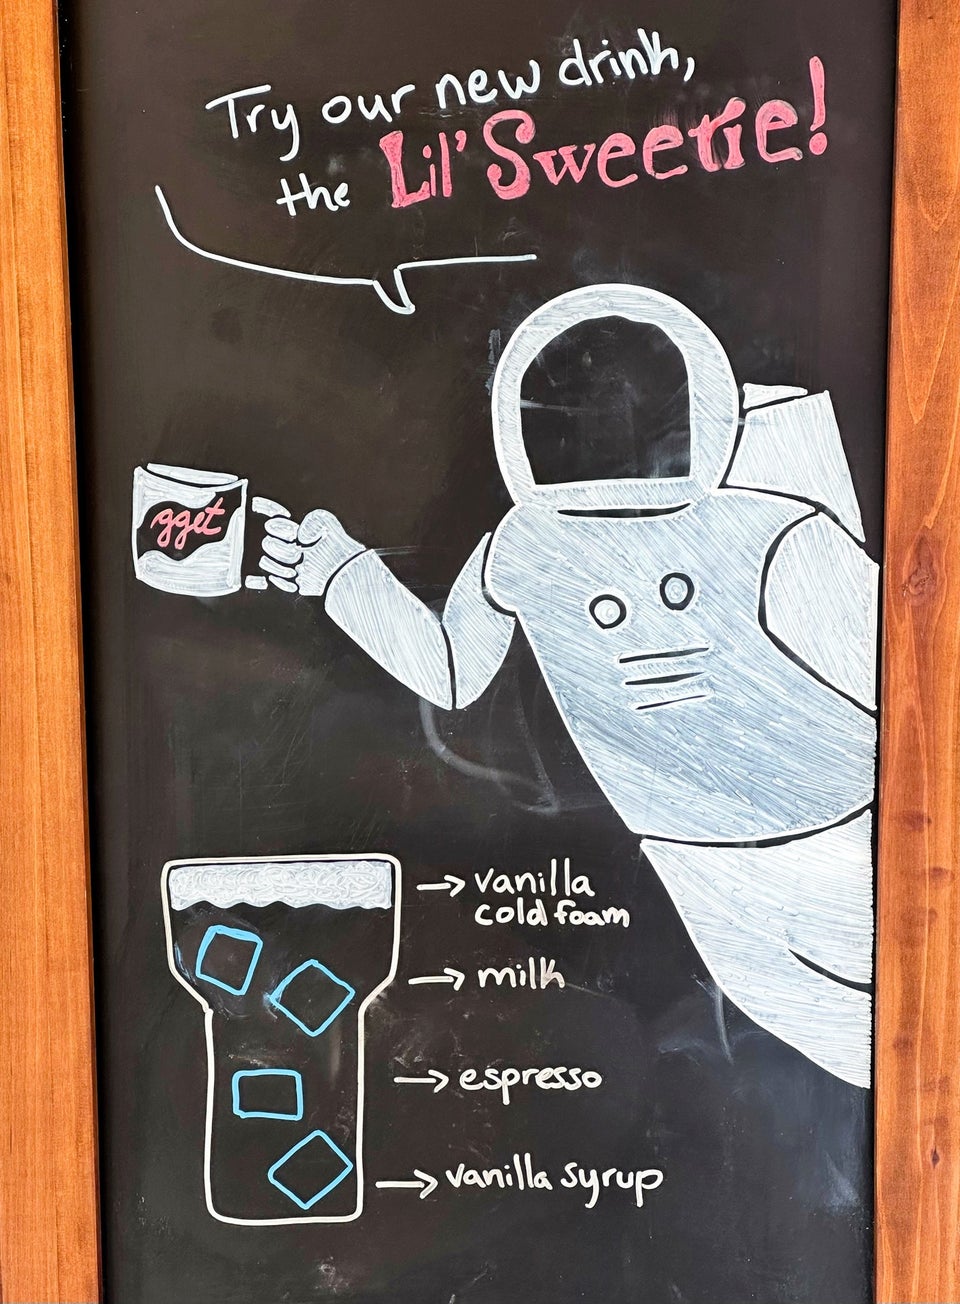 Try our new drink,
the Lil' Sweetie!
gget
→ vanilla
cold foam
→ milk
→ espresso
→ vanilla syrup